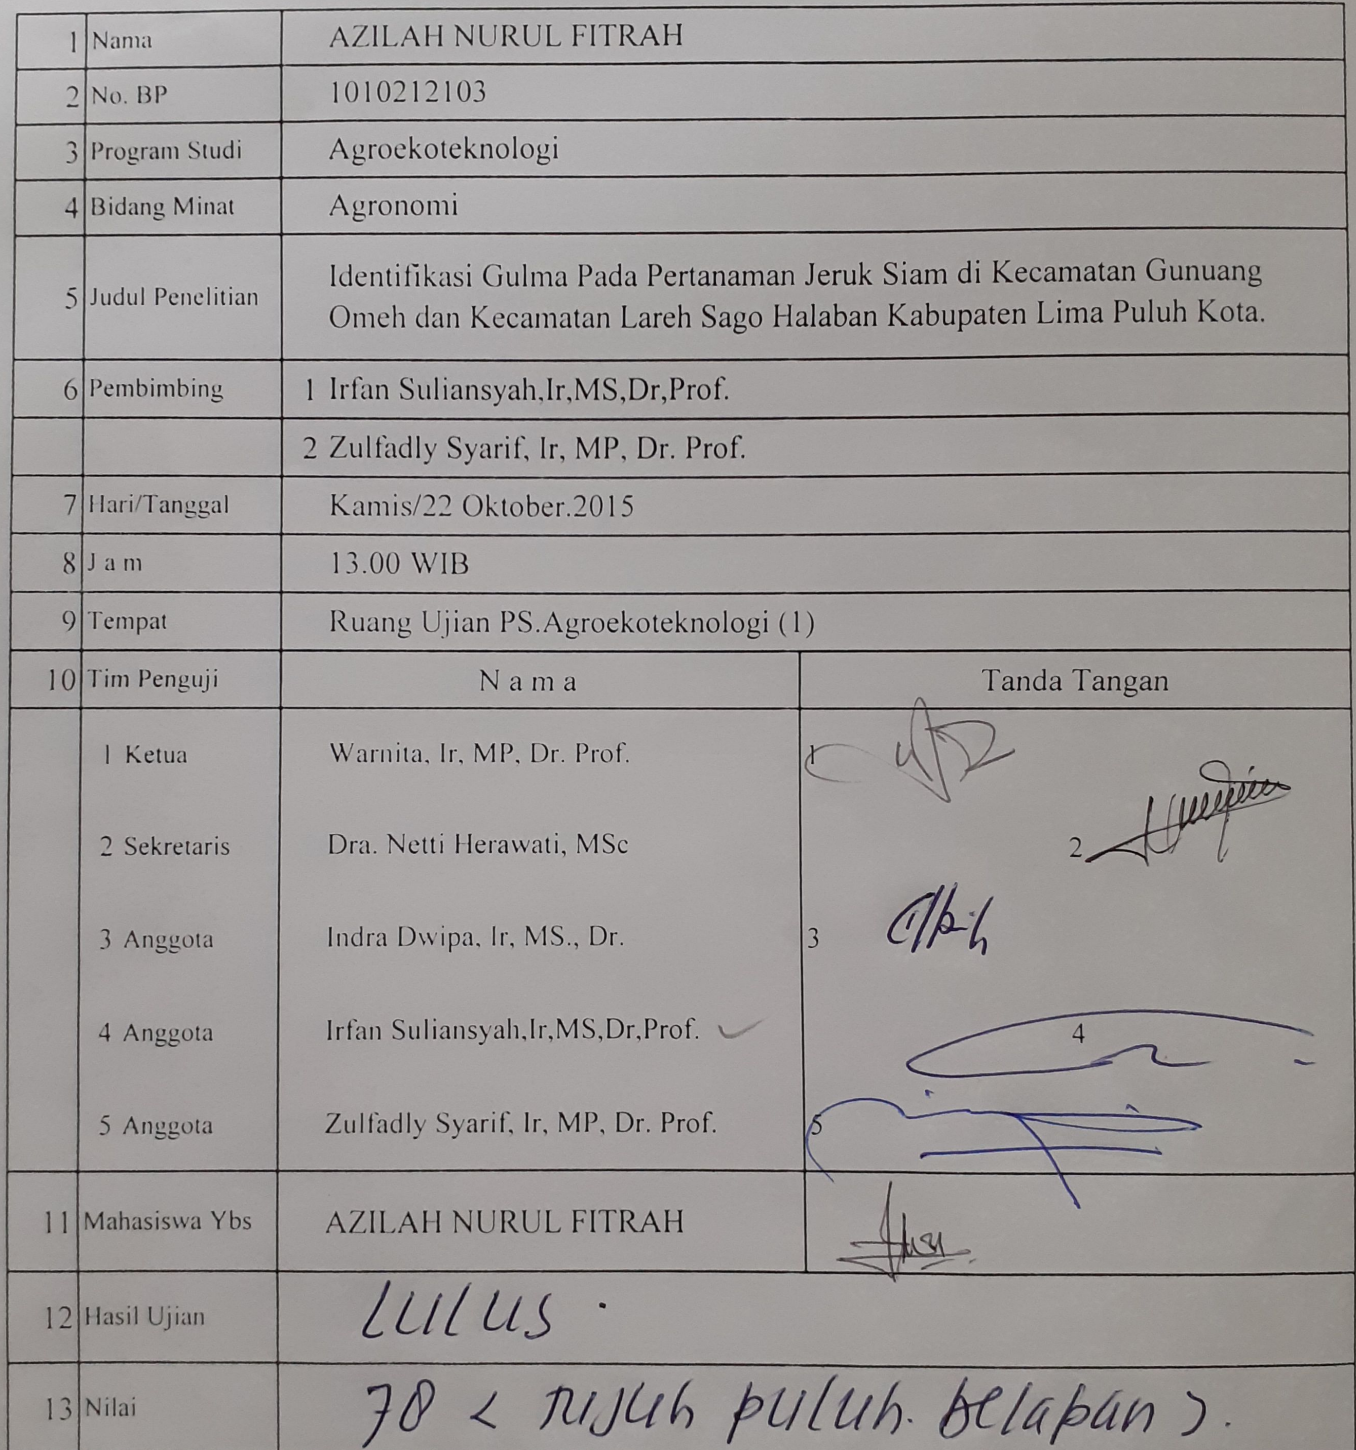 1 Nama AZILAH NURUL FITRAH
2 No. BP 1010212103
3 Program Studi Agroekoteknologi
4 Bidang Minat Agronomi
5 Judul Penelitian Identifikasi Gulma Pada Pertanaman Jeruk Siam di Kecamatan Gunuang
Omeh dan Kecamatan Lareh Sago Halaban Kabupaten Lima Puluh Kota.
6 Pembimbing 1 Irfan Suliansyah,Ir,MS,Dr,Prof.
2 Zulfadly Syarif, Ir, MP, Dr. Prof.
7 Hari/Tanggal Kamis/22 Oktober.2015
8 J a m 13.00 WIB
9 Tempat Ruang Ujian PS.Agroekoteknologi (1)
10 Tim Penguji N a m a Tanda Tangan
1 Ketua Warnita, Ir, MP, Dr. Prof. 1
2 Sekretaris Dra. Netti Herawati, MSc 2
3 Anggota Indra Dwipa, Ir, MS., Dr. 3
4 Anggota Irfan Suliansyah,Ir,MS,Dr,Prof. 4
5 Anggota Zulfadly Syarif, Ir, MP, Dr. Prof. 5
11 Mahasiswa Ybs AZILAH NURUL FITRAH
12 Hasil Ujian LULUS .
13 Nilai 78 < tujuh puluh. delapan >.